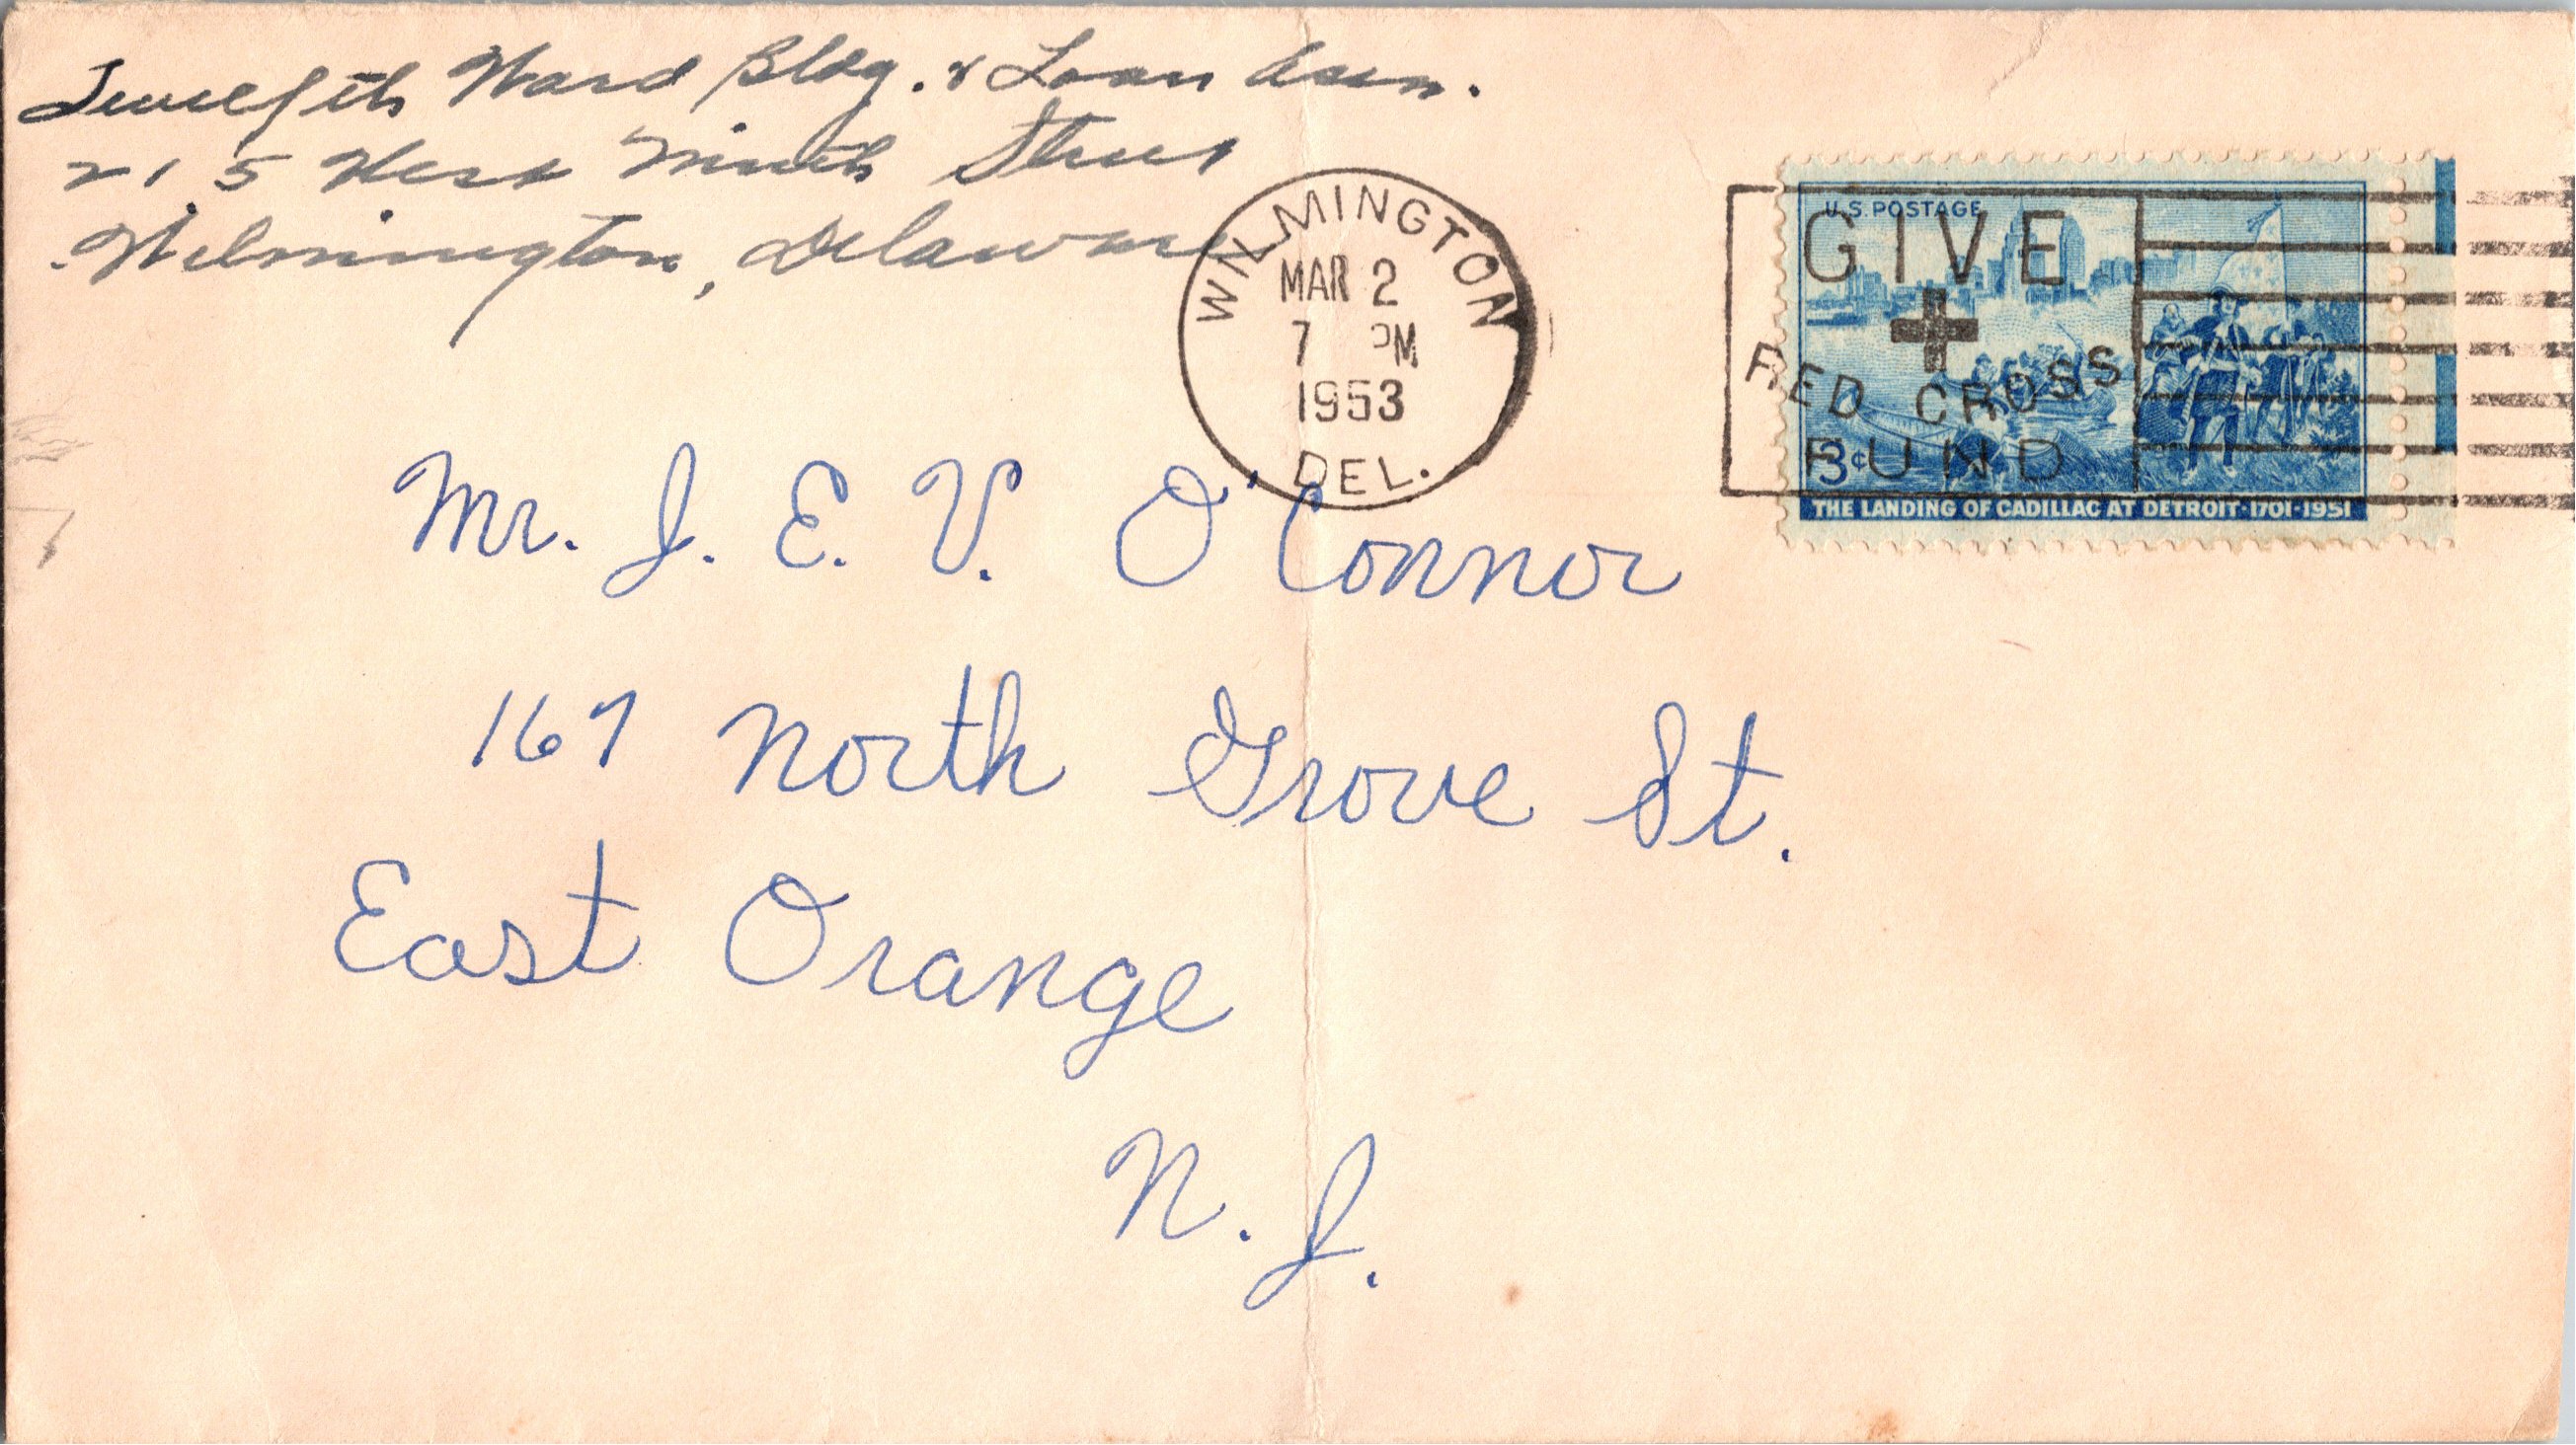 Twelfth Ward Bldg. & Loan Assn.
215 West Ninth Street
Wilmington, Delaware
WILMINGTON
MAR 2
7 PM
1953
DEL.
U.S. POSTAGE
GIVE
RED CROSS
FUND
3¢
THE LANDING OF CADILLAC AT DETROIT·1701-1951
Mr. J. E. V. O'Connor
167 North Grove St.
East Orange
N. J.